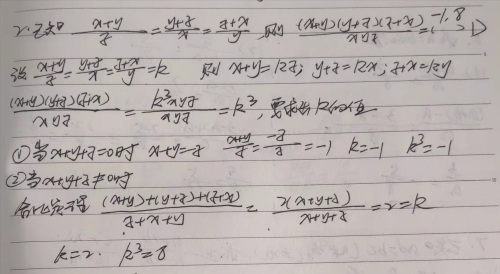 2.已知 (x+y)/z = (y+z)/x = (z+x)/y 则 (x+y)(y+z)(z+x)/xyz = -1, 8
设 (x+y)/z = (y+z)/x = (z+x)/y = k 则 x+y=kz; y+z=kx; z+x=ky
(x+y)(y+z)(z+x)/xyz = k³xyz/xyz = k³, 要求出k的值
①当x+y+z=0时 x+y=-z (x+y)/z = -z/z = -1 k=-1 k³=-1
②当x+y+z≠0时
合比定理 ((x+y)+(y+z)+(z+x))/(z+x+y) = 2(x+y+z)/(x+y+z) = 2 = k
k=2. k³=8